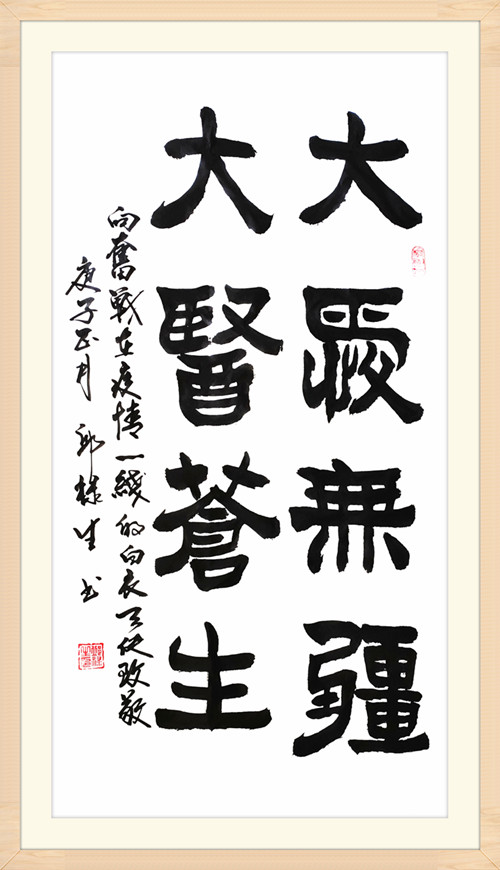 大愛無疆
大醫蒼生
向奮戰在疫情一綫的白衣天使致敬
庚子正月 邱生书